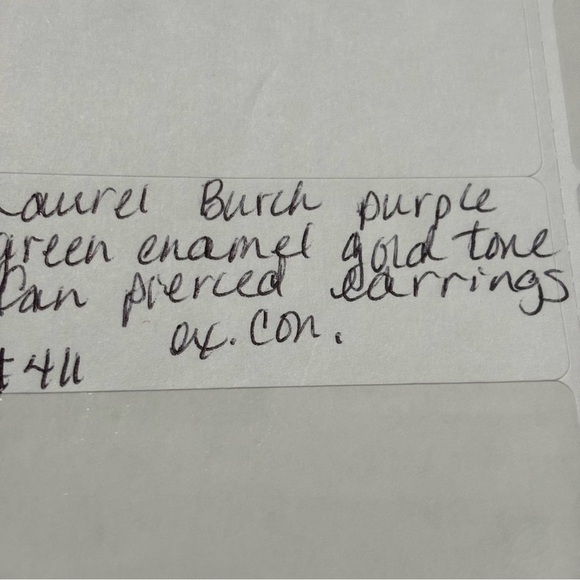 Laurel Burch purple
green enamel gold tone
Fan pierced earrings
ex. con.